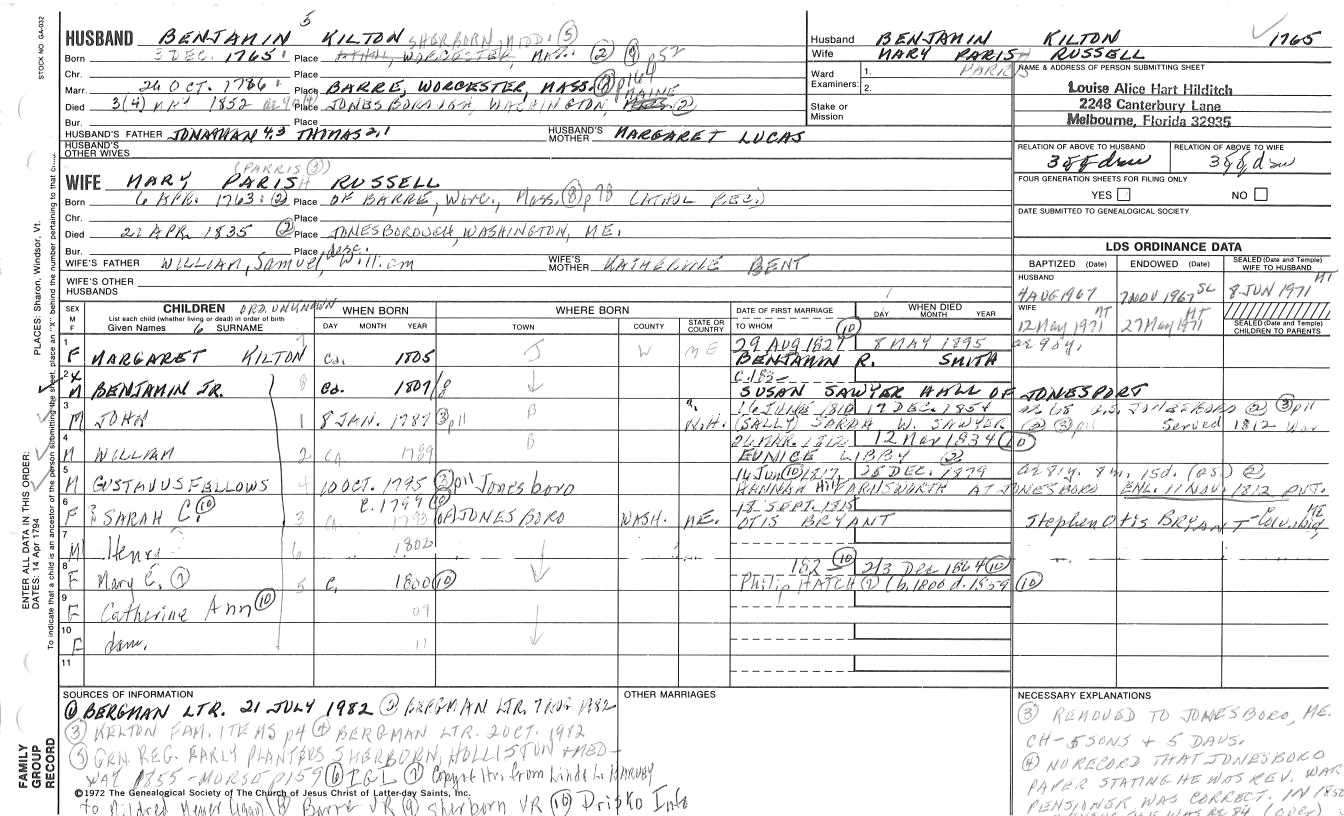 STOCK NO. GA-032
5
HUSBAND BENJAMIN KILTON SHERBORN, MIDD. (5)
Born 3 DEC. 1765 Place WORCESTER, MASS. (2) (9) p52
Chr. Place
Marr. 26 OCT. 1786 Place BARRE, WORCESTER, MASS. p164
Died 3(4) 1852 Place JONESBOROUGH, WASHINGTON, MAINE (2)
Bur. Place
HUSBAND'S FATHER JONATHAN 4,3 THOMAS 2,1 HUSBAND'S MOTHER MARGARET LUCAS
HUSBAND'S OTHER WIVES
(PARRIS (3))
WIFE MARY PARISH RUSSELL
Born 6 APR. 1763 (2) Place OF BARRE, WORC., MASS. (8) p78 (ATHOL REC.)
Chr. Place
Died 22 APR. 1835 (2) Place JONESBOROUGH, WASHINGTON, ME.
Bur. Place
WIFE'S FATHER WILLIAM, Samuel, William WIFE'S MOTHER KATHERINE BENT
WIFE'S OTHER HUSBANDS
Husband BENJAMIN KILTON 1765
Wife MARY PARISH RUSSELL
PARRIS
Ward Examiners: 1.
2.
Stake or Mission
NAME & ADDRESS OF PERSON SUBMITTING SHEET
Louise Alice Hart Hilditch
2248 Canterbury Lane
Melbourne, Florida 32935
RELATION OF ABOVE TO HUSBAND RELATION OF ABOVE TO WIFE
FOUR GENERATION SHEETS FOR FILING ONLY
YES NO
DATE SUBMITTED TO GENEALOGICAL SOCIETY
LDS ORDINANCE DATA
BAPTIZED (Date) ENDOWED (Date) SEALED (Date and Temple) WIFE TO HUSBAND
HUSBAND
4 AUG 1967 7 NOV 1967 SL 8 JUN 1971 MT
WIFE
12 May 1971 MT 27 May 1971 MT SEALED (Date and Temple) CHILDREN TO PARENTS
SEX M F CHILDREN ORD. UNKNOWN
List each child (whether living or dead) in order of birth
Given Names SURNAME
WHEN BORN DAY MONTH YEAR
WHERE BORN TOWN COUNTY STATE OR COUNTRY
DATE OF FIRST MARRIAGE TO WHOM
WHEN DIED DAY MONTH YEAR
1 F MARGARET KILTON 7 Ca. 1805 J W ME 29 AUG 1827 (10) 8 MAY 1895
BENJAMIN R. SMITH
2 M BENJAMIN JR. 8 Ca. 1807
SUSAN SAWYER HALL OF JONESPORT
3 M JOHN 1 8 JAN. 1787 (3) p11 B 17 DEC. 1854
(SALLY) SARAH W. SAWYER Served 1812 War
4 M WILLIAM 2 CA 1789 B 26 MAR. 1812 12 Nov 1834 (10)
EUNICE LIBBY (2)
5 M GUSTAVUS FELLOWS 4 10 OCT. 1795 (3) p11 Jonesboro 14 Jun (10) 1817 25 DEC. 1879
HANNAH Hill FARNSWORTH AT JONESBORO ENL. 11 NOV. 1812 PVT.
6 F SARAH C. (10) 3 C. 1799 (10)
CA 1793 OF JONESBORO WASH. ME. 18 SEPT. 1815
OTIS BRYANT Stephen Otis BRYANT
7 M Henry 6 1802
8 F Mary E. (7) 5 C. 1800 (10) 182 (10) 2/3 Dec 1864 (10)
Philip HATCH (2) (b. 1800 d. 1859 (10)
9 F Catherine Ann (10) 09
10 F dau. 11
11
SOURCES OF INFORMATION
(1) BERGMAN LTR. 21 JULY 1982 (2) BERGMAN LTR. 7 AUG 1982
(3) KELTON FAM. ITEMS p4 (4) BERGMAN LTR. 2 OCT. 1982
(5) GEN. REG. EARLY PLANTERS SHERBORN, HOLLISTON + MED-
WAY 1855 - MORSE p159 (6) (7) Copy of ltrs from Linda L.
©1972 The Genealogical Society of The Church of Jesus Christ of Latter-day Saints, Inc.
to Mildred (8) Barre VR (9) Sherborn VR (10) Drisko Info
OTHER MARRIAGES
NECESSARY EXPLANATIONS
(3) REMOVED TO JONESBORO, ME.
CH - 5 SONS + 5 DAUS.
(4) NO RECORD THAT JONESBORO
PAPER STATING HE WAS REV. WAR
PENSIONER WAS CORRECT. IN 1850
FAMILY GROUP RECORD
ENTER ALL DATA IN THIS ORDER:
DATES: 14 Apr 1794
PLACES: Sharon, Windsor, Vt.
To indicate that a child is an ancestor of the person submitting the sheet, place an "X" behind the number pertaining to that c